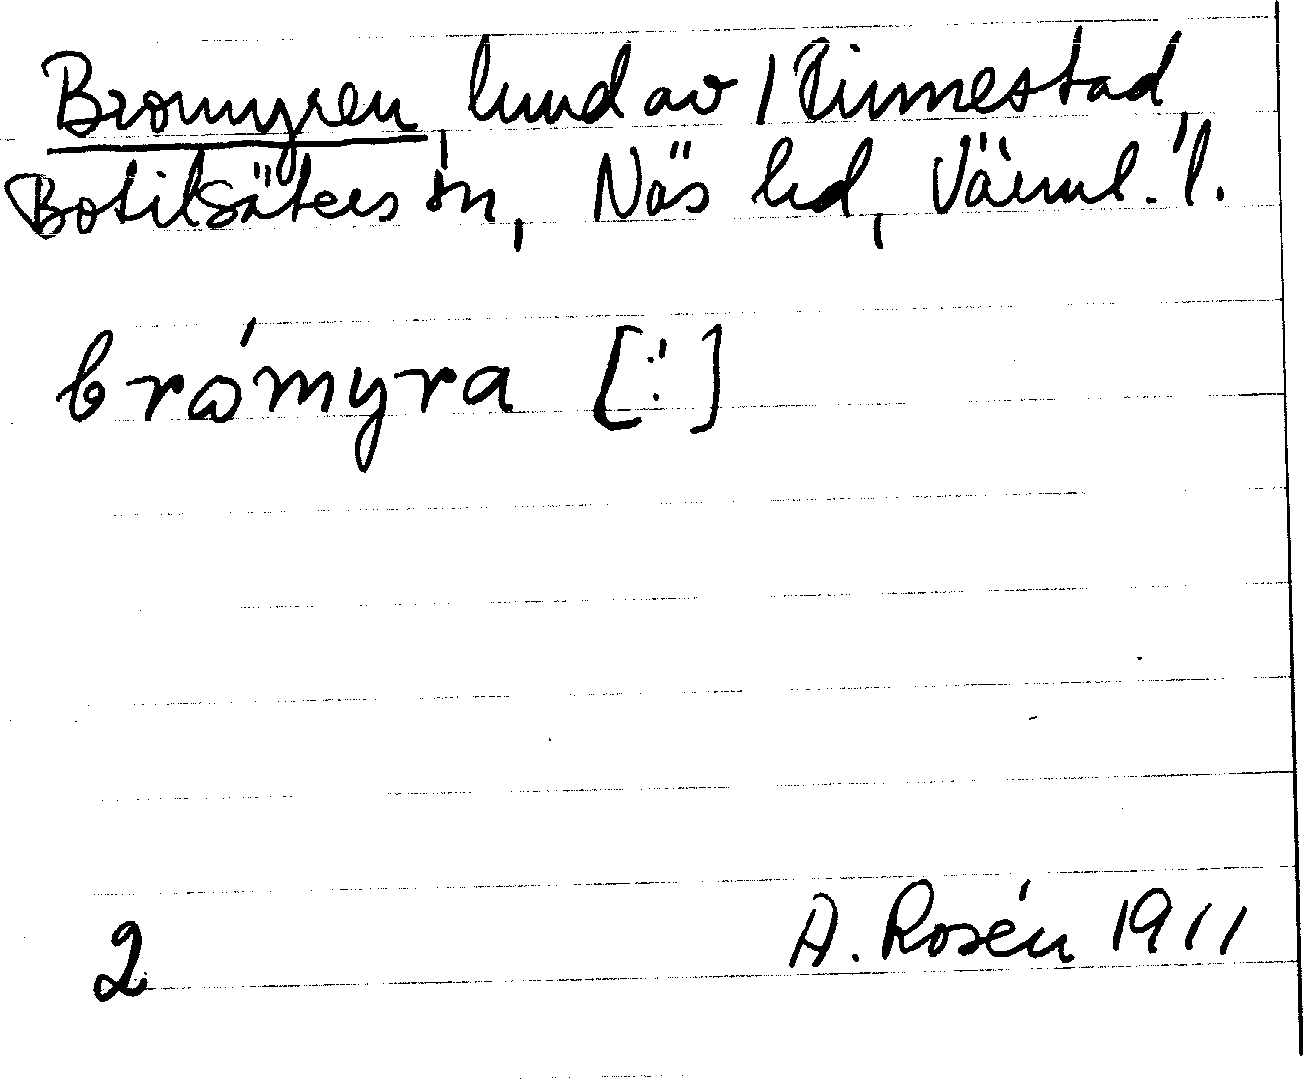 Bromyren, hmd av 1 Rinnestad,
Botilsäters sn, Näs hd, Värml. l.
bromyra [⁝]
2 A. Rosén 1911